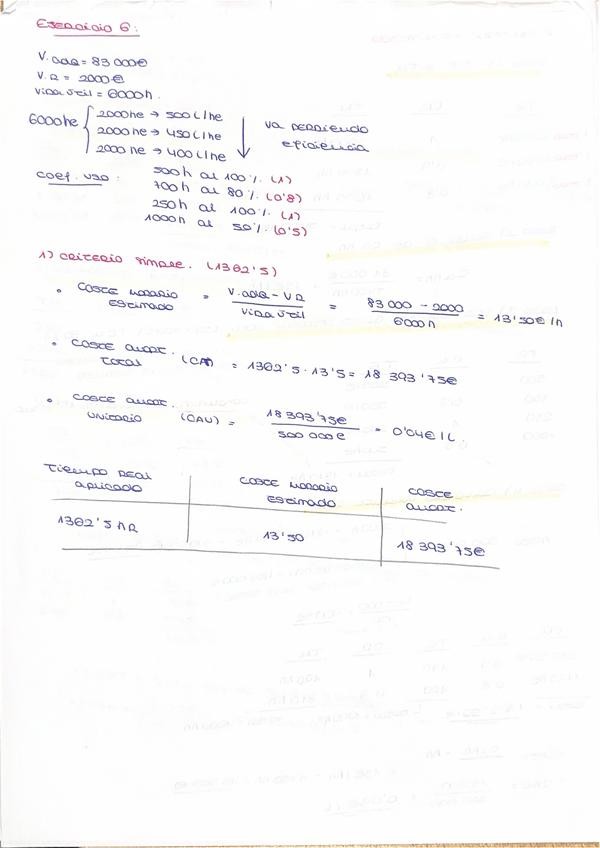 EJERCICIO 6:
V. ADQ = 83 000€
V.R = 2000€
VIDA ÚTIL = 6000h.
6000he
2000he → 500 L/he
2000he → 450 L/he
2000he → 400 L/he
VA PERDIENDO EFICIENCIA
COEF. USO:
500h al 100%. (1)
700h al 80%. (0'8)
250h al 100%. (1)
1000h al 50%. (0'5)
1) CRITERIO SIMPLE. (1362'5)
• COSTE HORARIO ESTIMADO = V.ADQ - VR / VIDA ÚTIL = 83 000 - 2000 / 6000h = 13'50€/h
• COSTE AMORT. TOTAL (CA) = 1362'5 · 13'5 = 18 393'75€
• COSTE AMORT. UNITARIO (CAU) = 18 393'75€ / 500 000 = 0'04€/L.
TIEMPO REAL APLICADO | COSTE HORARIO ESTIMADO | COSTE AMORT.
1362'5 | 13'50 | 18 393'75€